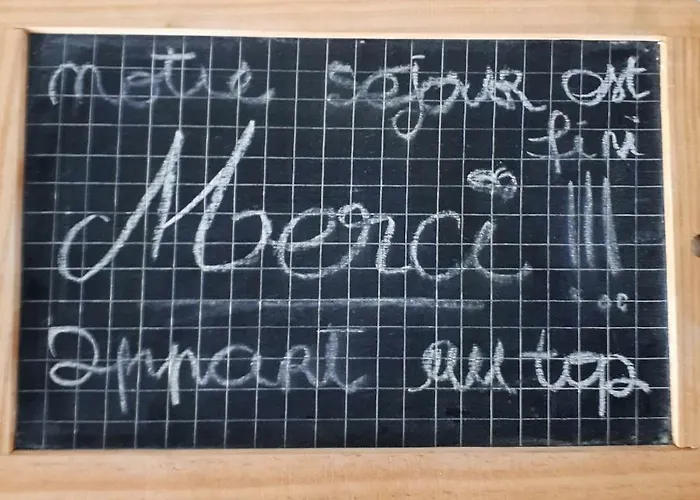 notre sejour est
fini
Merci !!!
appart au top